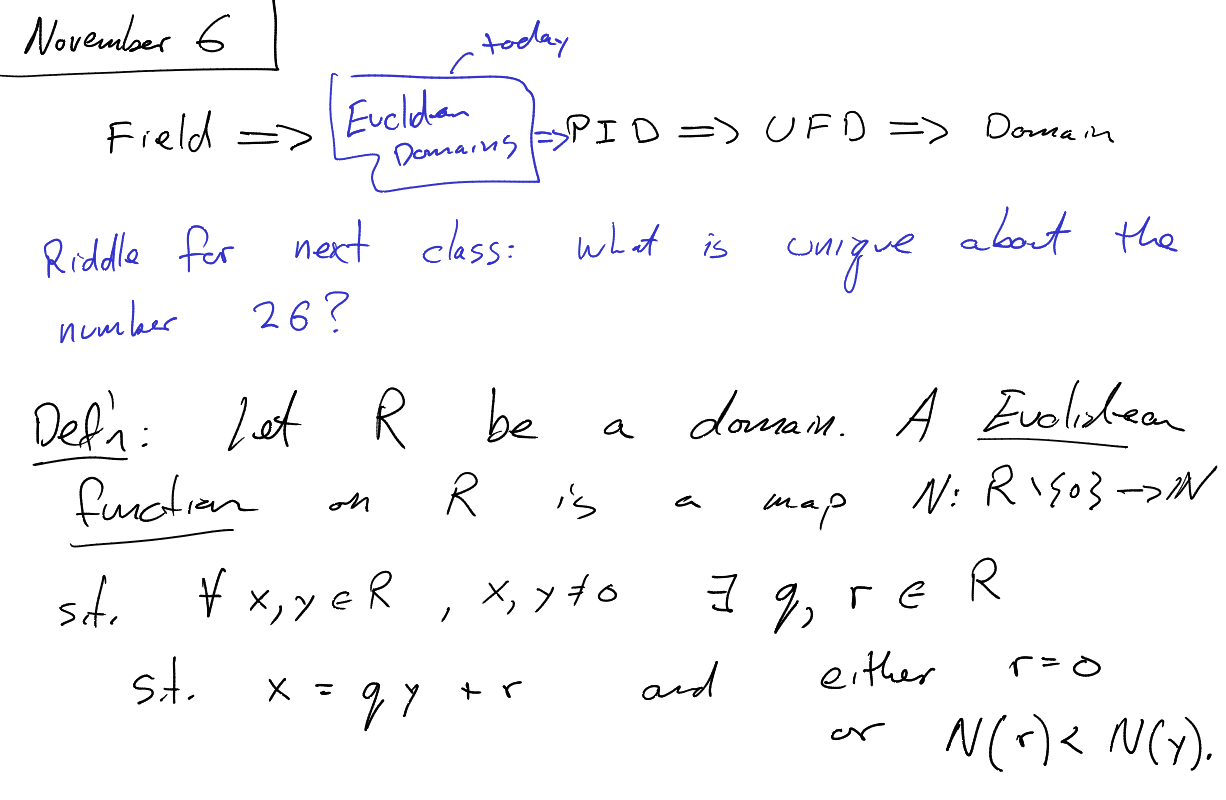 November 6
today
Field => Euclidean Domains => PID => UFD => Domain
Riddle for next class: what is unique about the
number 26?
Def'n: Let R be a domain. A Euclidean
function on R is a map N: R \ {0} -> ℕ
s.t. ∀ x, y ∈ R , x, y ≠ 0 ∃ q, r ∈ R
s.t. x = q y + r and either r = 0
or N(r) < N(y).